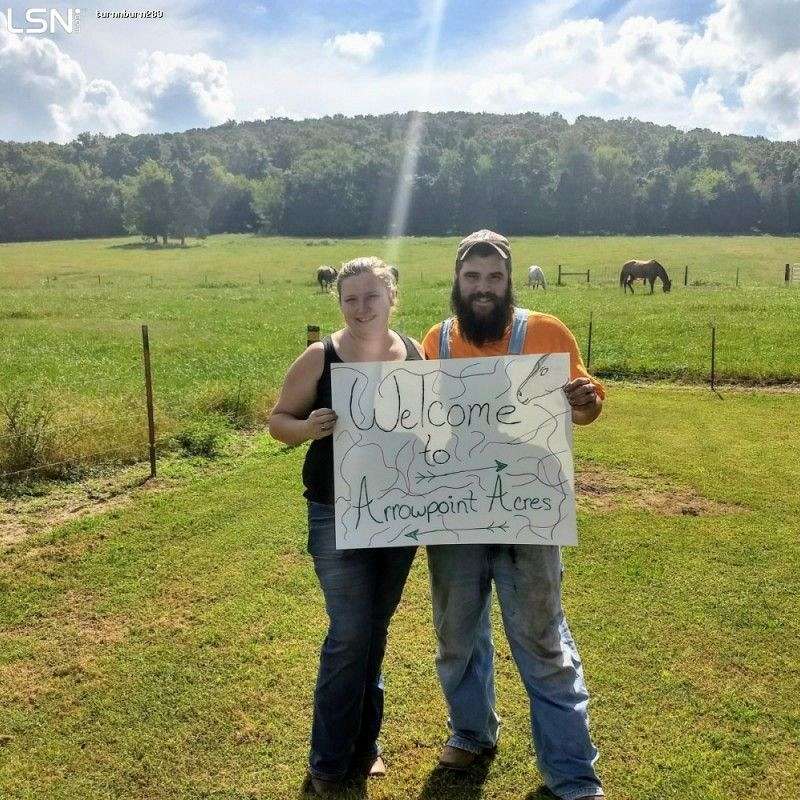 LSN turnnburn289
Welcome
to
Arrowpoint Acres